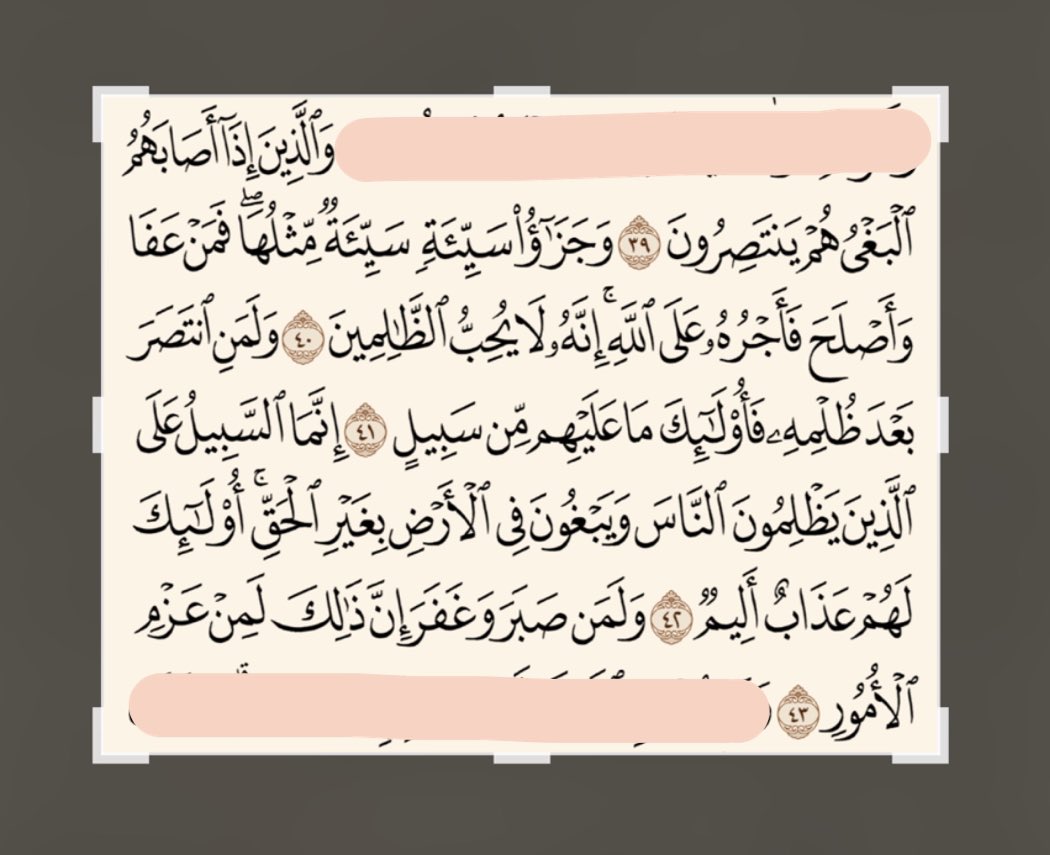 وَٱلَّذِينَ إِذَآ أَصَابَهُمُ
ٱلۡبَغۡيُ هُمۡ يَنتَصِرُونَ ٣٩ وَجَزَٰٓؤُاْ سَيِّئَةٖ سَيِّئَةٞ مِّثۡلُهَاۖ فَمَنۡ عَفَا
وَأَصۡلَحَ فَأَجۡرُهُۥ عَلَى ٱللَّهِۚ إِنَّهُۥ لَا يُحِبُّ ٱلظَّٰلِمِينَ ٤٠ وَلَمَنِ ٱنتَصَرَ
بَعۡدَ ظُلۡمِهِۦ فَأُوْلَٰٓئِكَ مَا عَلَيۡهِم مِّن سَبِيلٍ ٤١ إِنَّمَا ٱلسَّبِيلُ عَلَى
ٱلَّذِينَ يَظۡلِمُونَ ٱلنَّاسَ وَيَبۡغُونَ فِي ٱلۡأَرۡضِ بِغَيۡرِ ٱلۡحَقِّۚ أُوْلَٰٓئِكَ
لَهُمۡ عَذَابٌ أَلِيمٞ ٤٢ وَلَمَن صَبَرَ وَغَفَرَ إِنَّ ذَٰلِكَ لَمِنۡ عَزۡمِ
ٱلۡأُمُورِ ٤٣